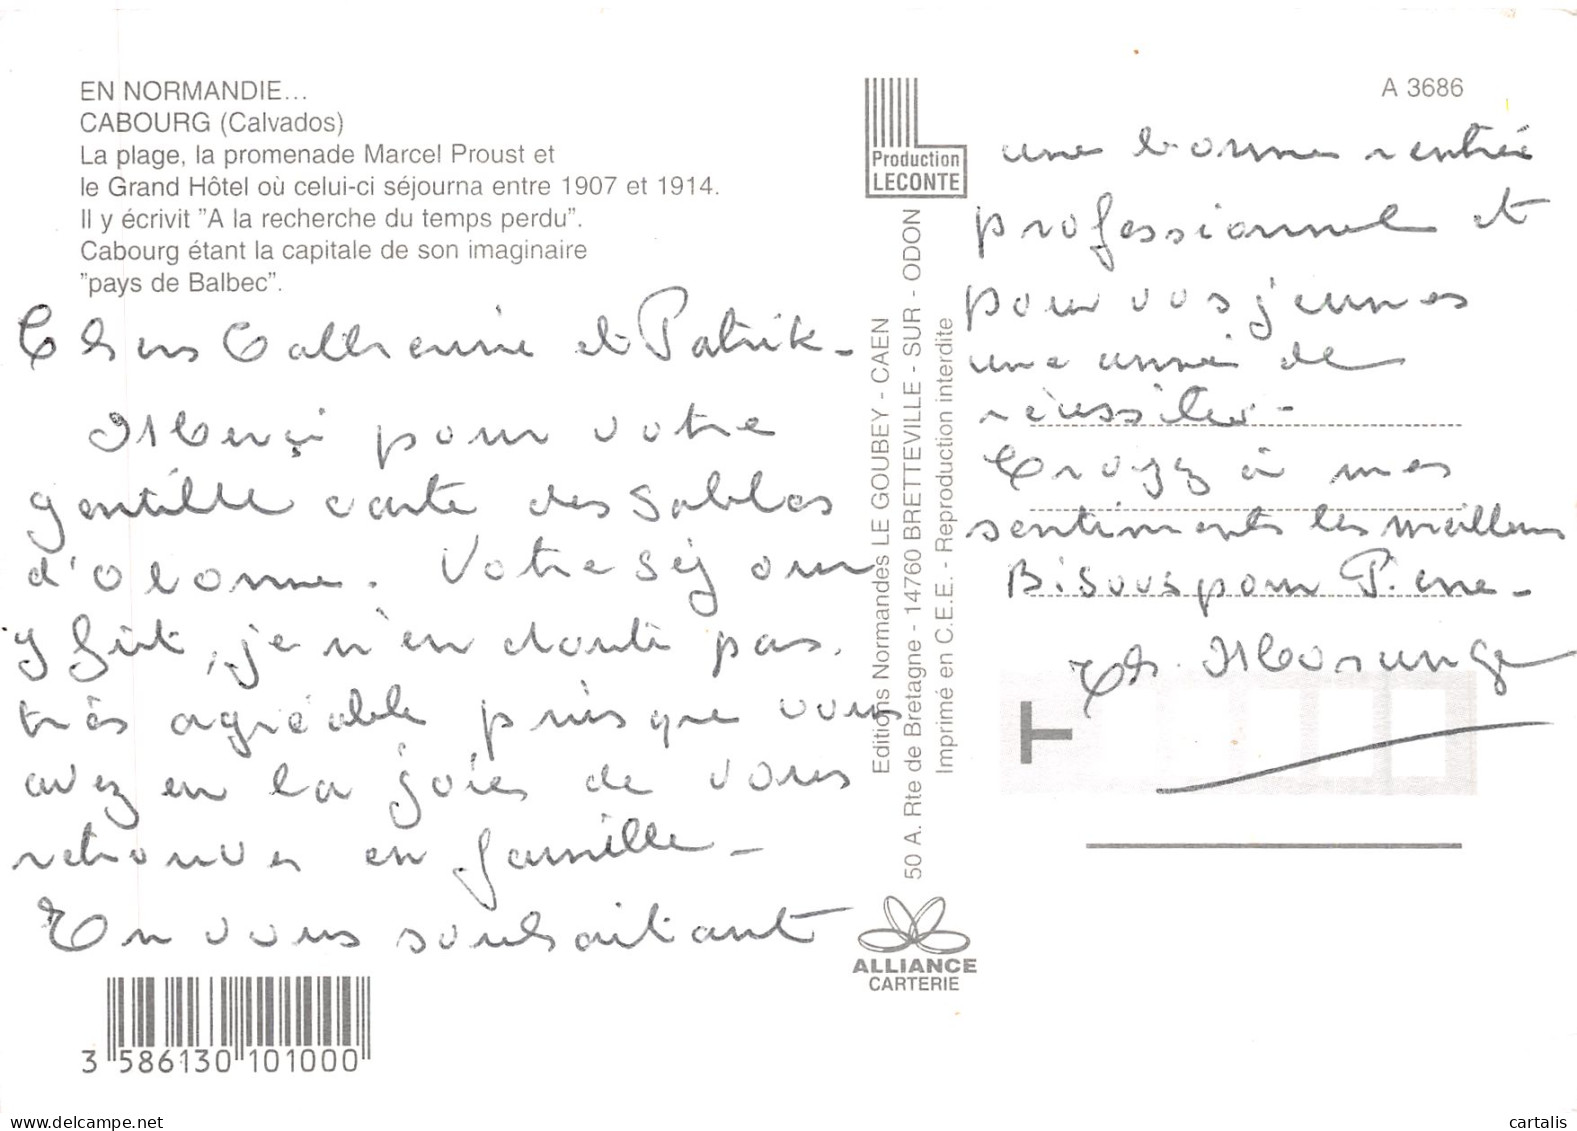 EN NORMANDIE...
CABOURG (Calvados)
La plage, la promenade Marcel Proust et
le Grand Hôtel où celui-ci séjourna entre 1907 et 1914.
Il y écrivit "A la recherche du temps perdu".
Cabourg étant la capitale de son imaginaire
"pays de Balbec".
Chers Catherine et Patrik -
Merçi pour votre
gentille carte des Sables
d'olonne. Votre séjour
y fût, je n'en doute pas,
très agréable puisque vous
avez eu la joie de vous
retrouver en famille -
En vous souhaitant
3 586130 101000
Production
LECONTE
Editions Normandes LE GOUBEY - CAEN
50 A. Rte de Bretagne - 14760 BRETTEVILLE - SUR - ODON
Imprimé en C.E.E. - Reproduction interdite
ALLIANCE
CARTERIE
A 3686
une bonne rentrée
professionnel et
pour vos jeunes
une année de
réussites -
Croyez à mes
sentiments les meilleurs
Bisous pour
T
cartalis
delcampe.net